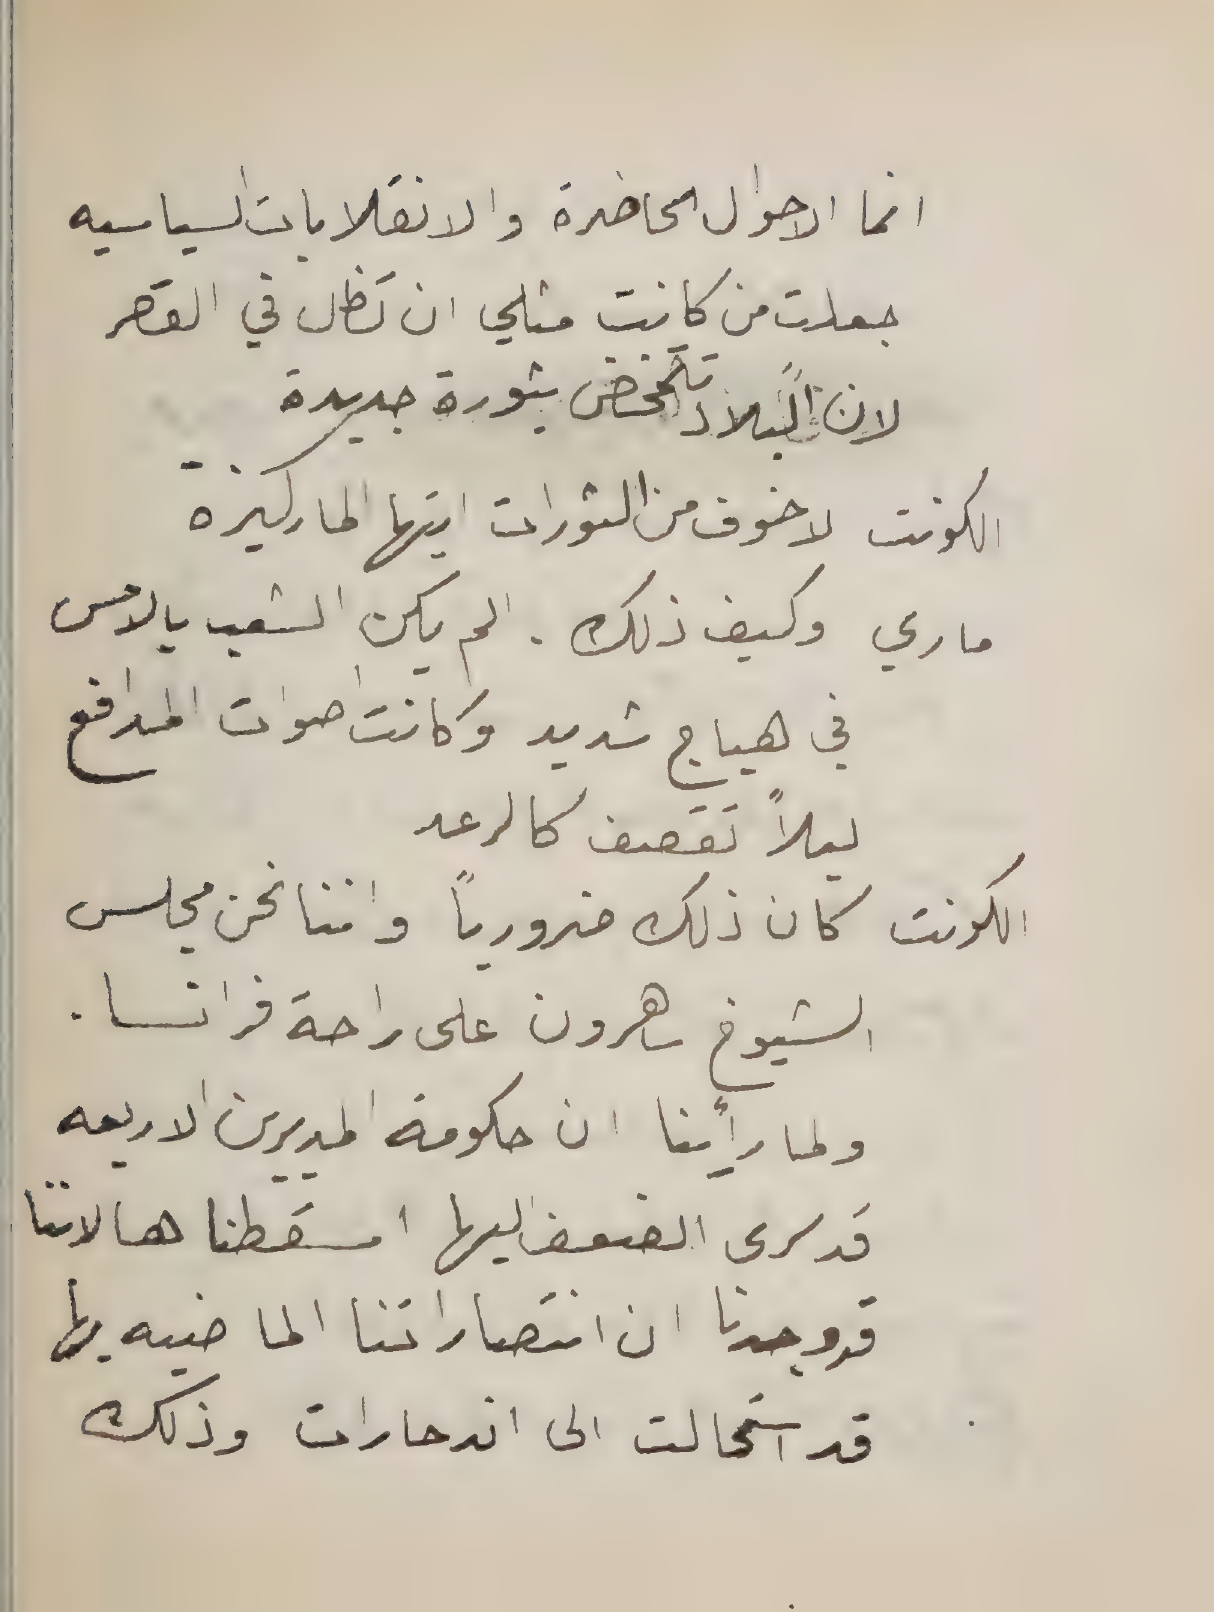 انما الاحوال الحاضرة والانقلابات السياسيه
جعلت من كانت مثلي ان تظل في القصر
لان البلاد تتمخض بثورة جديدة
الكونت لا خوف من الثورات ايتها الماركيزة
ماري وكيف ذلك . الم يكن الشعب بالامس
في هياج شديد وكانت اصوات المدافع
ليلاً تقصف كالرعد
الكونت كان ذلك ضرورياً واننا نحن مجلس
الشيوخ ساهرون على راحة فرانسا .
ولما رأينا ان حكومة المديرين الاربعه
قد سرى الضعف اليها اسقطناها لاننا
قد وجدنا ان انتصاراتنا الماضيه بها
قد استحالت الى اندحارات وذلك